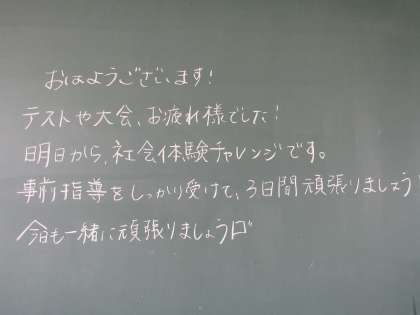 おはようございます!
テストや大会、お疲れ様でした!
明日から、社会体験チャレンジです。
事前指導をしっかり受けて、3日間頑張りましょう!
今日も一緒に頑張りましょう